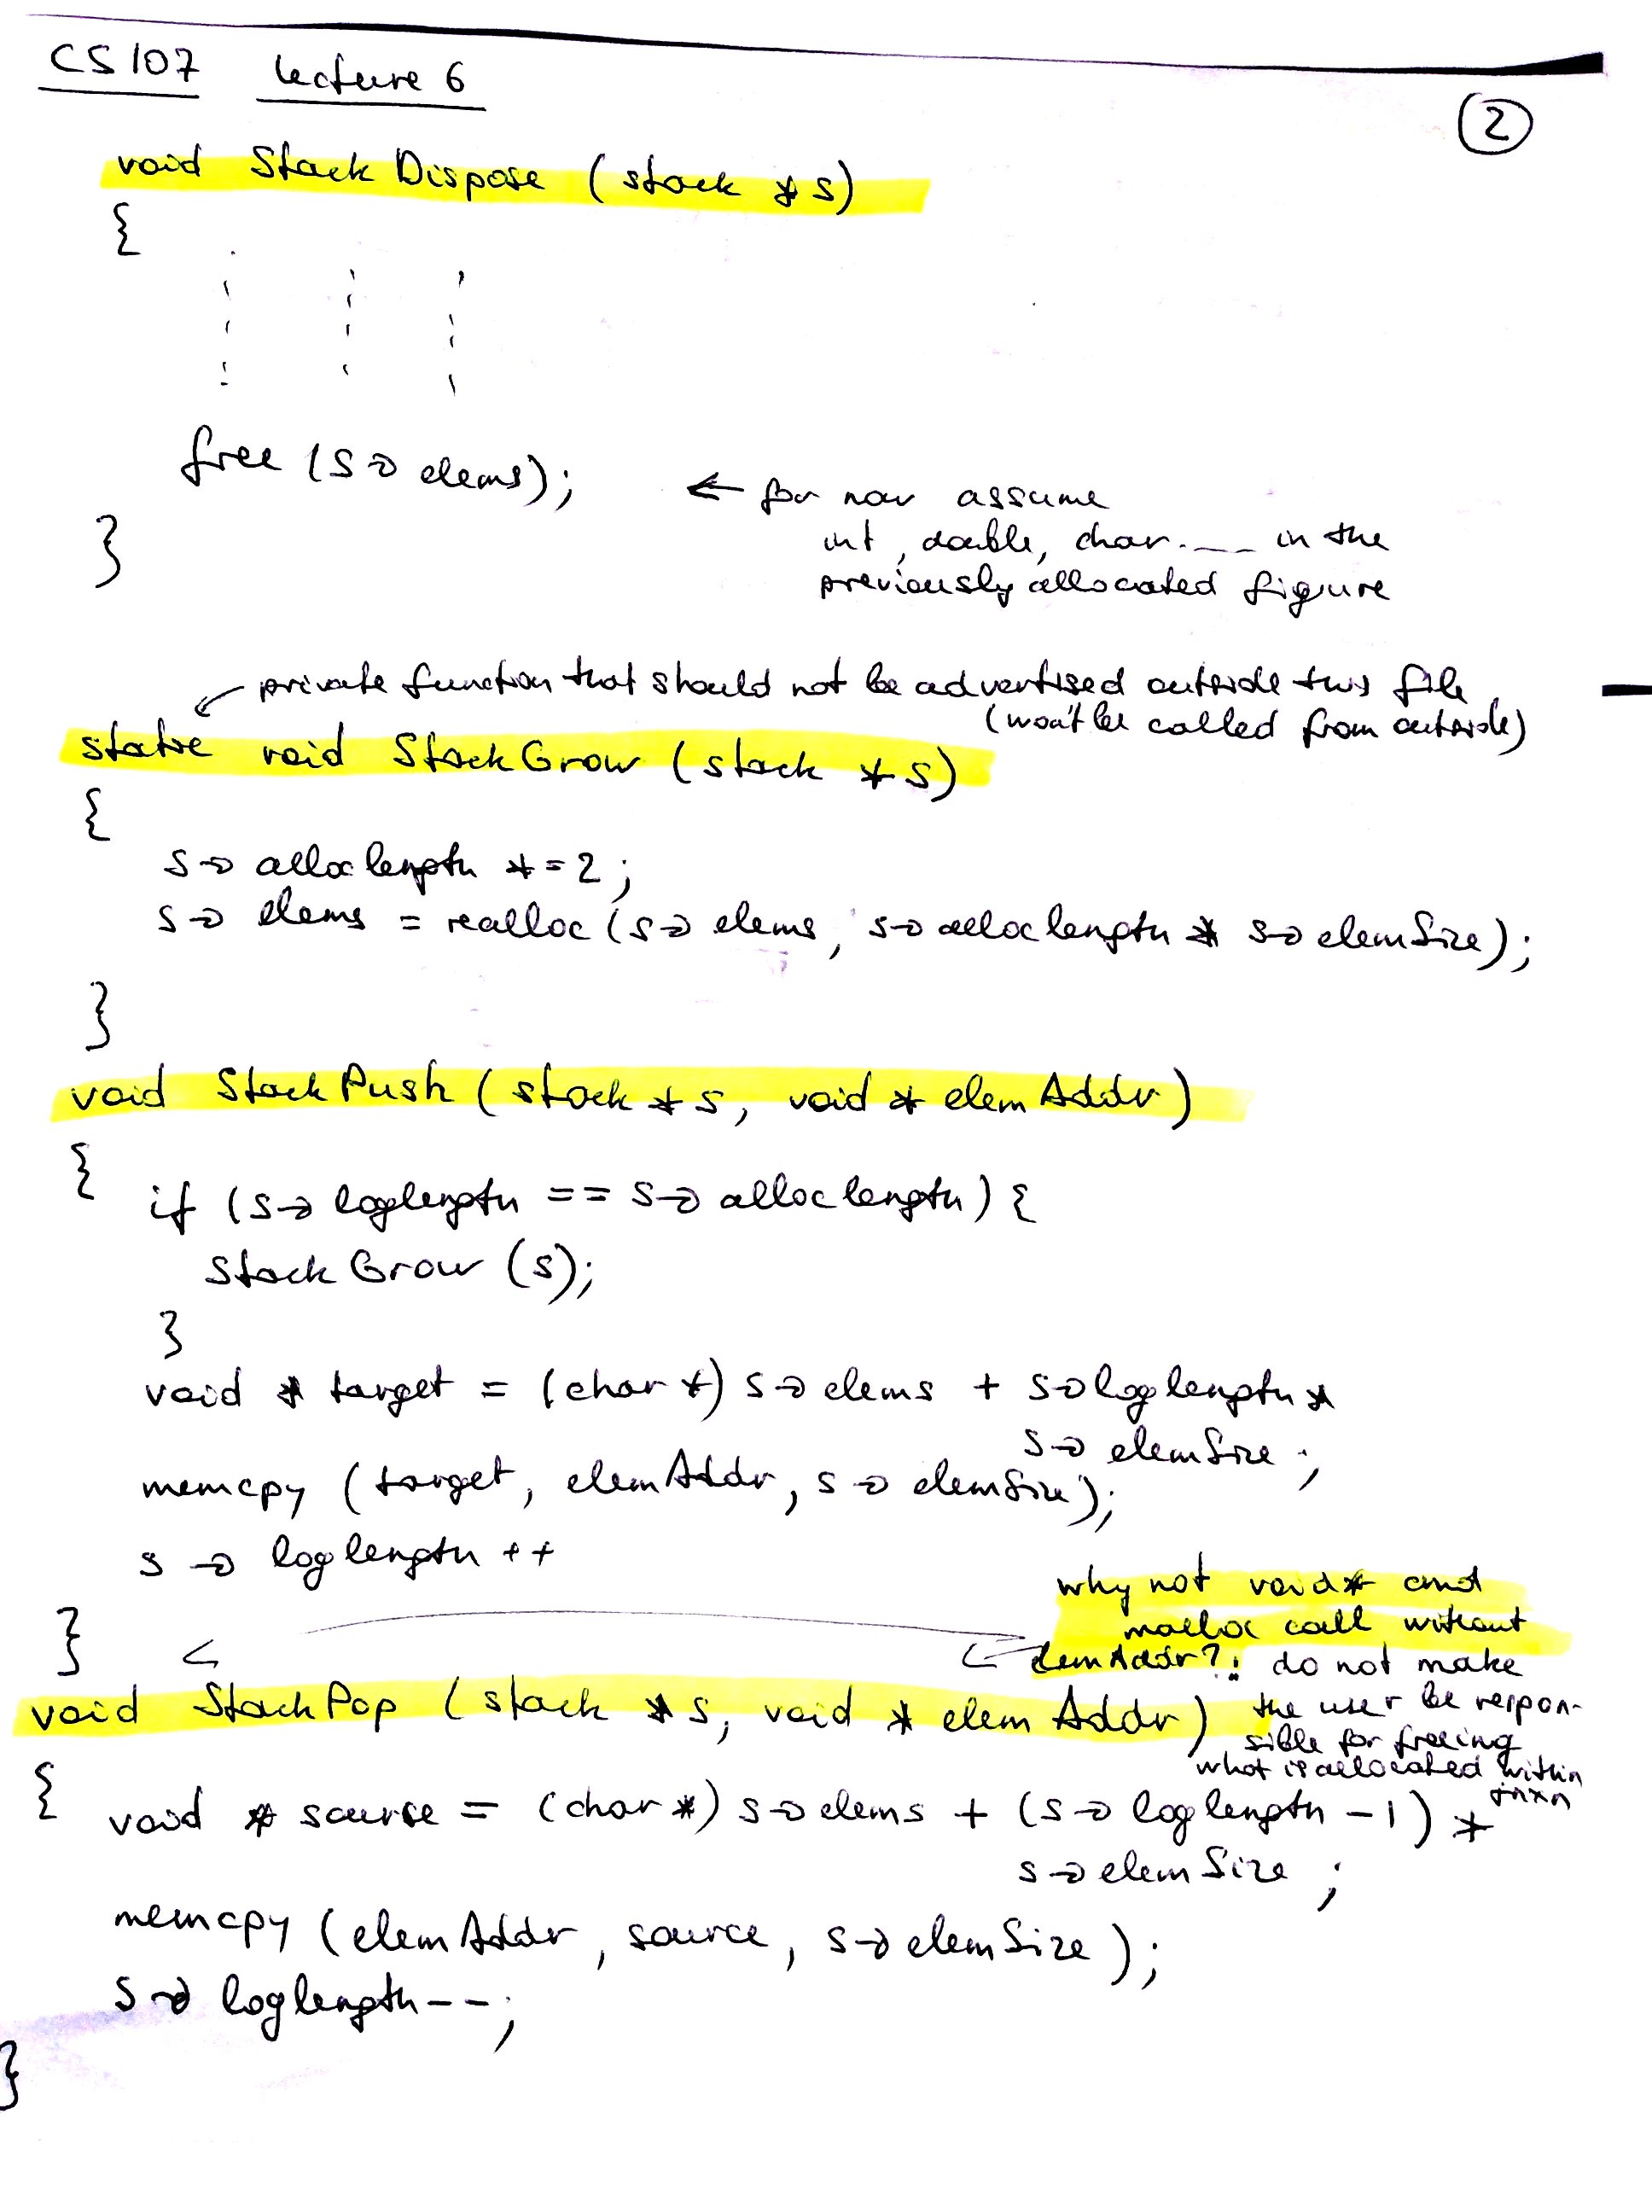 CS107 Lecture 6
2
void StackDispose (stack *s)
{
free (s→elems);
← for now assume
int, double, char.___ in the
previously allocated figure
}
private function that should not be advertised outside this file
(won't be called from outside)
static void StackGrow (stack *s)
{
s→alloclength *=2;
s→elems = realloc (s→elems, s→alloclength * s→elemSize);
}
void StackPush (stack *s, void * elemAddr)
{
if (s→loglength == s→alloclength) {
StackGrow (s);
}
void * target = (char *) s→elems + s→loglength *
s→elemSize;
memcpy (target, elemAddr, s→elemSize);
s→loglength ++
}
why not void* and
malloc call without
elemAddr?: do not make
the user be respon-
sible for freeing
what is allocated within
void StackPop (stack *s, void * elemAddr)
{
void * source = (char *) s→elems + (s→loglength -1) *
s→elemSize;
memcpy (elemAddr, source, s→elemSize);
s→loglength--;
}